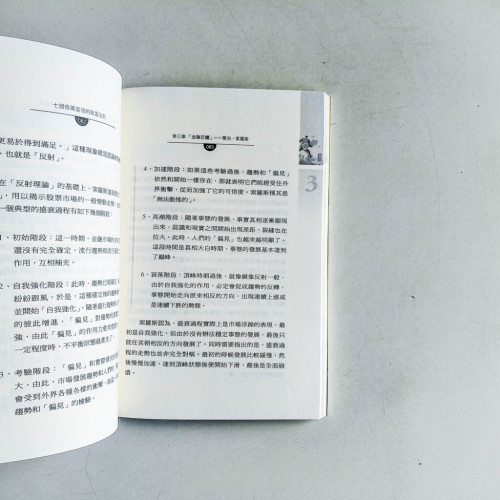 七個億萬富翁的致富
更易於得到滿足。」這種現象就是
，也就是「反射」。
在「反射理論」的基礎上，索羅斯
，用以揭示股票市場的一般變動
一個典型的盛衰過程有如下幾個階段：
1、初始階段：這一時期，金融市場的
還沒有完全確定。流行趨勢和
作用、互相補充。
2、自我強化階段：此時，趨勢已
紛紛跟風，於是，這種確定後的趨
並開始「自我強化」。隨著盛行趨勢
的彼此增進，「偏見」的作用力愈
強，由此「偏見」的作用力愈來
一定程度時，不平衡狀態就產生了
3、考驗階段：「偏見」和實際
大。由此，市場發展趨勢和人們的
會受到外界各種各樣的衝擊，
趨勢和「偏見」的檢驗。
第三章「金融巨鱷」——喬治．索羅斯
083
3
4、加速階段：如果這些考驗過後，趨勢和「偏見」
依然和開始一樣存在，那就表明它們能經受住外
界衝擊，從而加強了它的可信度。索羅斯稱其是
「無法動搖的」。
5、高潮階段：隨著事態的發展，事實真相逐漸顯現
出來，認識和現實之間開始出現差距，裂縫也在
拉大，此時，人們的「偏見」也越來越明顯了。
這段時間是真相大白時期，事態的發展基本達到
了巔峰。
6、衰落階段：頂峰時期過後，就像鏡像反射一般，
由於自我強化的作用，必定會促成趨勢的反轉，
事態開始走向原來相反的方向，出現連續上漲或
是連續下跌的勢態。
索羅斯認為，盛衰過程實際上是市場浮躁的表現，最
初是自我強化，但由於沒有辦法穩定事態的發展，最後只
能往其朝相反的方向發展了。同時需要指出的是，盛衰過
程的走勢也並非完全對稱。最初的時候發展比較緩慢，然
後慢慢加速，達到頂峰狀態後便開始下滑，最後是全面崩
潰。